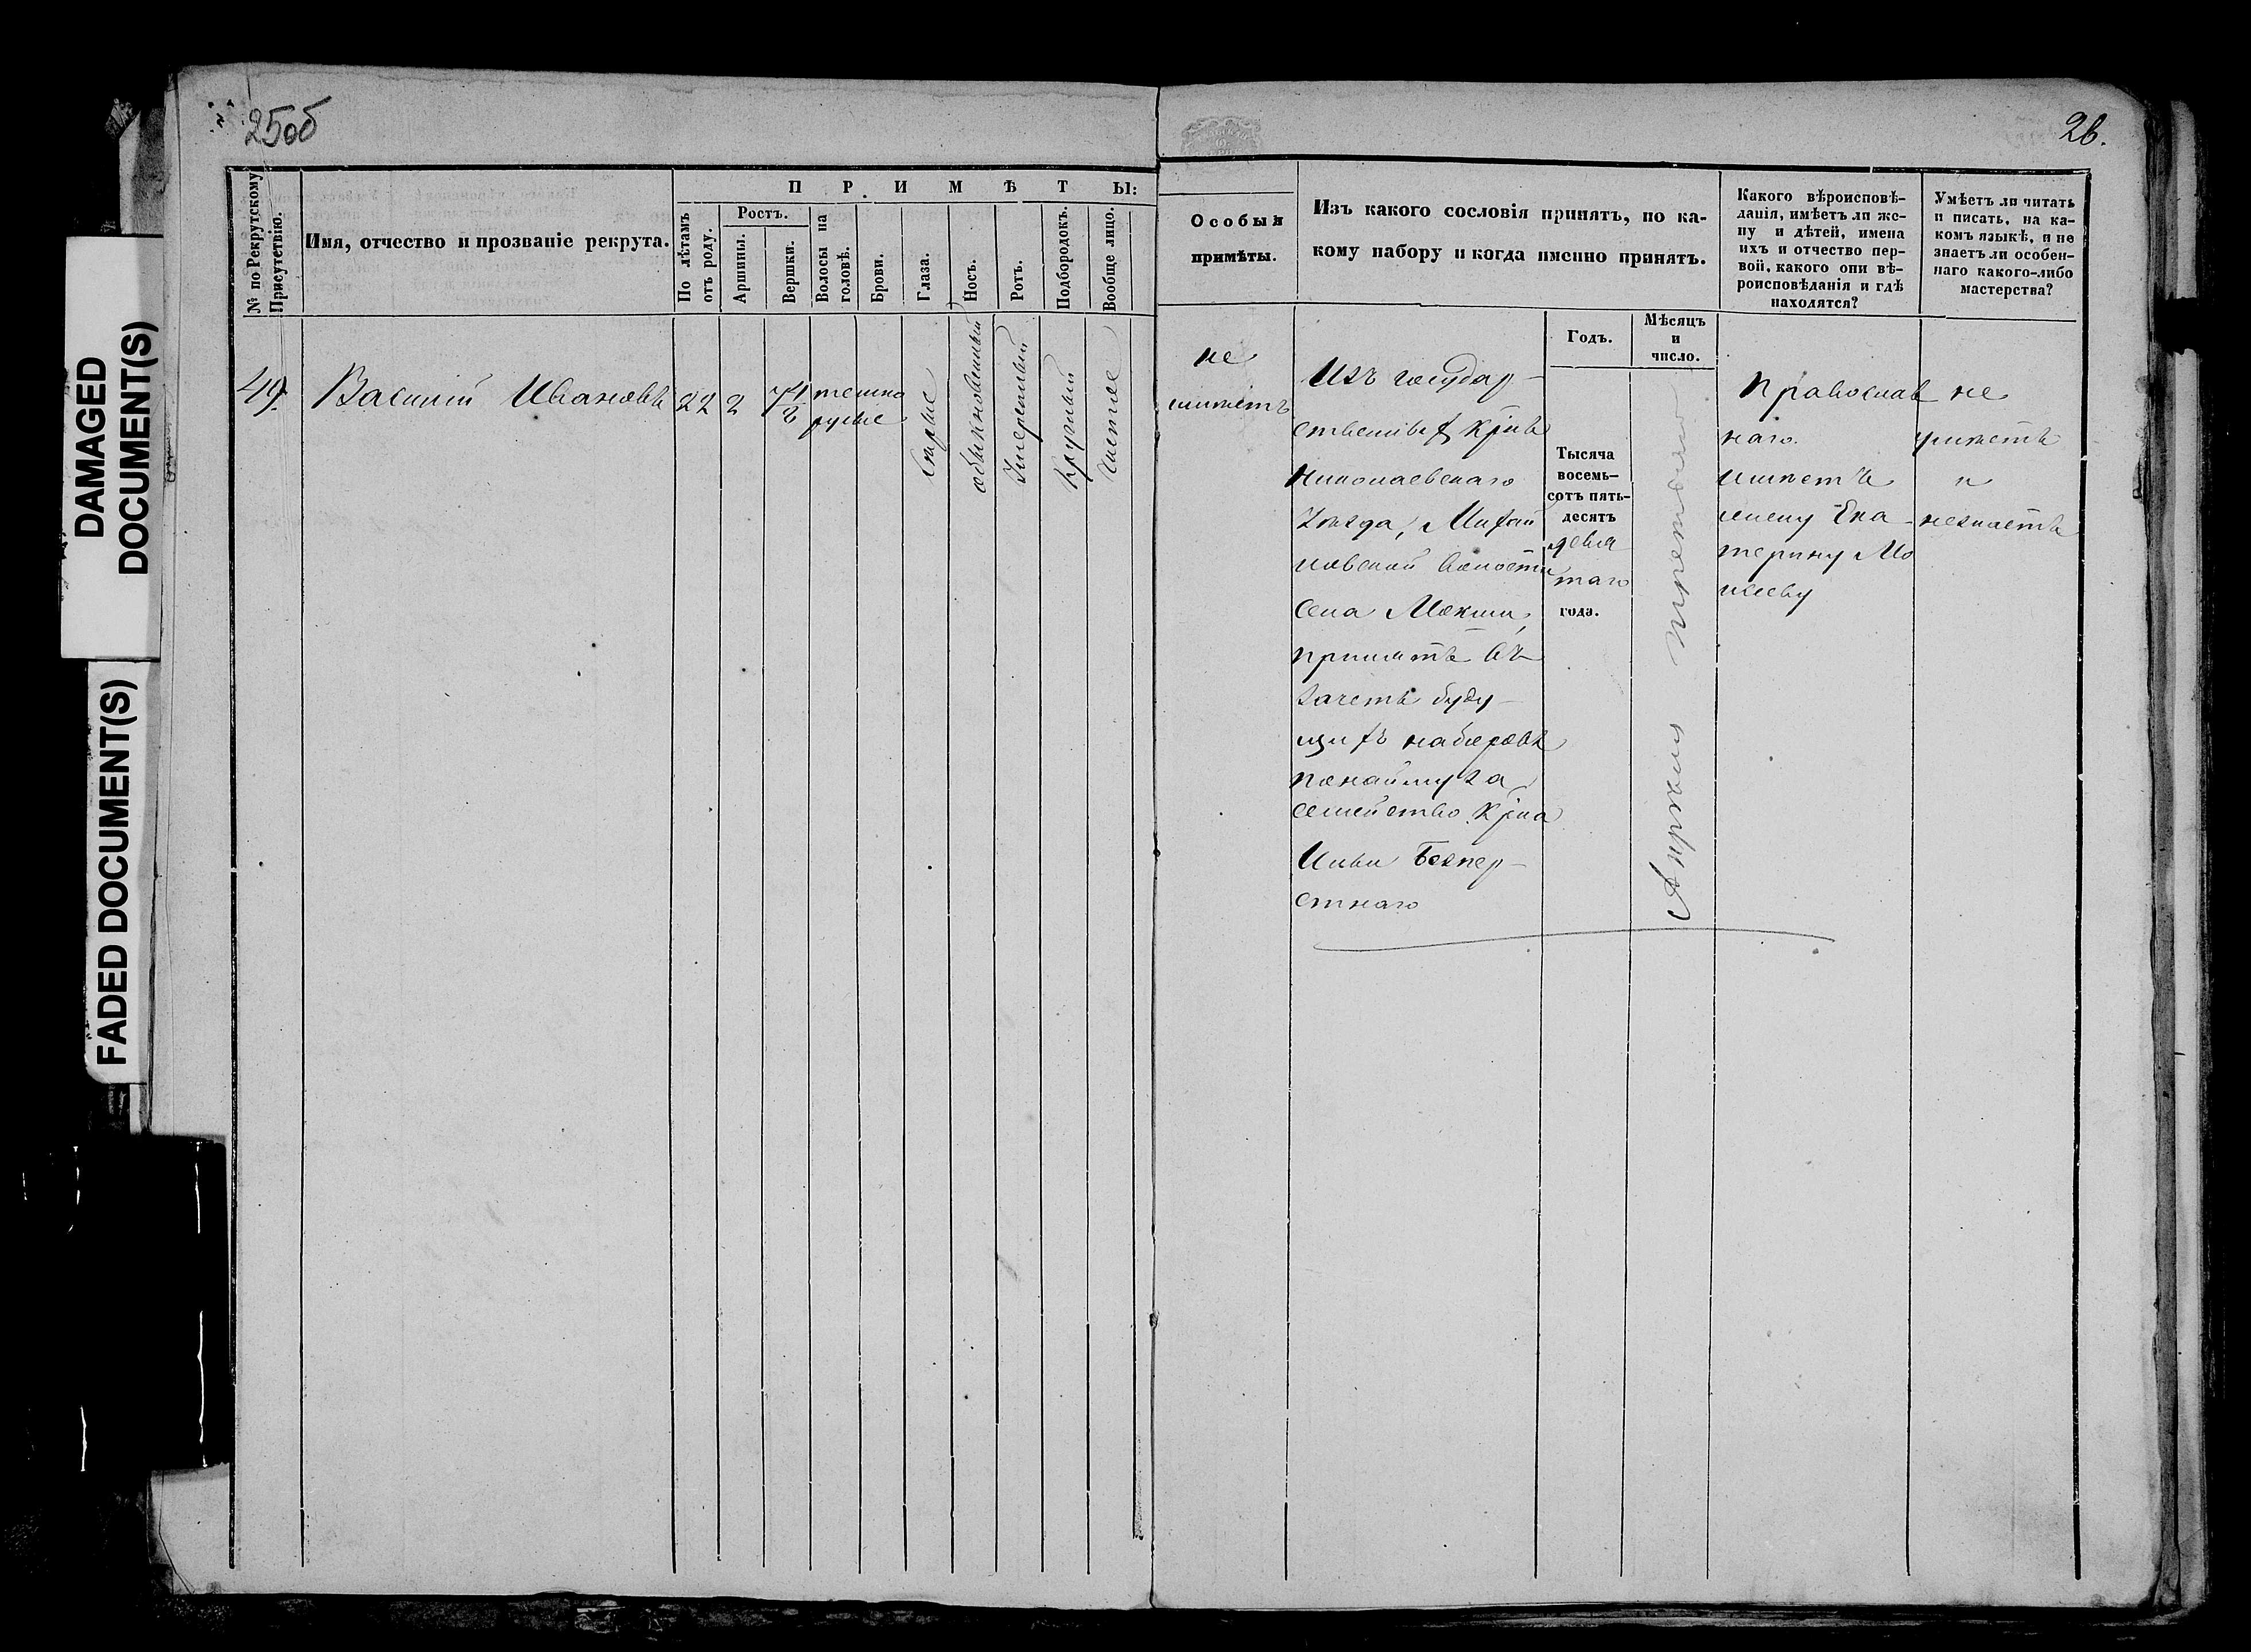 25об
26.
DAMAGED
DOCUMENT(S)
FADED DOCUMENT(S)
№ по Рекрутскому
Присутствію.
Имя, отчество и прозваніе рекрута.
ПРИМѢТЫ:
По лѣтамъ
отъ роду.
Ростъ.
Аршины.
Вершки.
Волосы на
головѣ.
Брови.
Глаза.
Носъ.
Ротъ.
Подбородокъ.
Вообще лицо.
Особыя
примѣты.
Изъ какого сословія принятъ, по ка-
кому набору и когда именно принятъ.
Годъ.
Мѣсяцъ
и
число.
Какого вѣроисповѣ-
данія, имѣетъ ли же-
ну и дѣтей, имена
ихъ и отчество пер-
вой, какого они вѣ-
роисповѣданія и гдѣ
находятся?
Умѣетъ ли читать
и писать, на ка-
комъ языкѣ, и не
знаетъ ли особен-
наго какого-либо
мастерства?
49.
Василій Ивановъ
22
2
7 1/8
темно
русые
Сѣрые
обыкновенный
Умеренный
Круглый
Чистое
не
имѣетъ
Изъ государ-
ственныхъ крнъ
Николаевскаго
Уѣзда, Михай
ловской волости
Села Мокши,
принятъ въ
зачетъ буду-
щихъ наборовъ
понайму за
семейство крна
Ильи
Тысяча
восемь-
сотъ пять-
десятъ
девя
таго
года.
Апрѣля третьяго
Православ
наго.
имѣетъ
жену Ека-
терину Мо
исееву
не
умѣетъ
и
незнаетъ